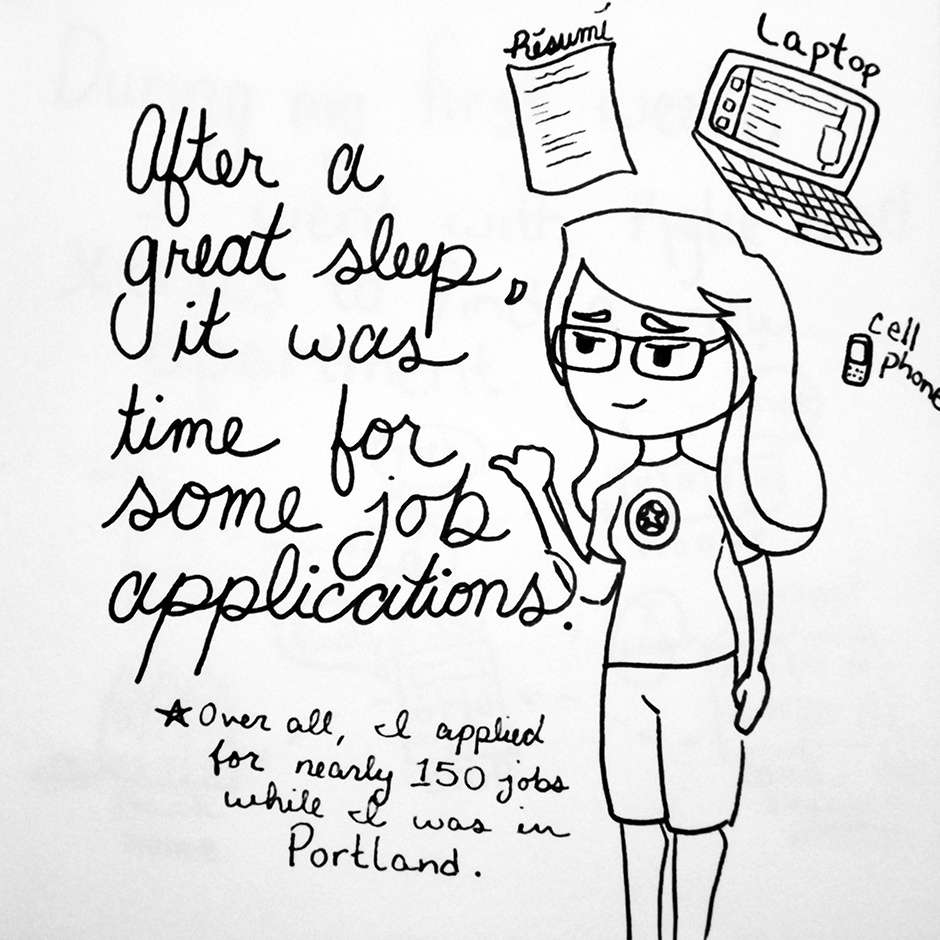 Résumé
Laptop
After a
great sleep,
it was
time for
some job
applications.
cell
phone
★Over all, I applied
for nearly 150 jobs
while I was in
Portland.